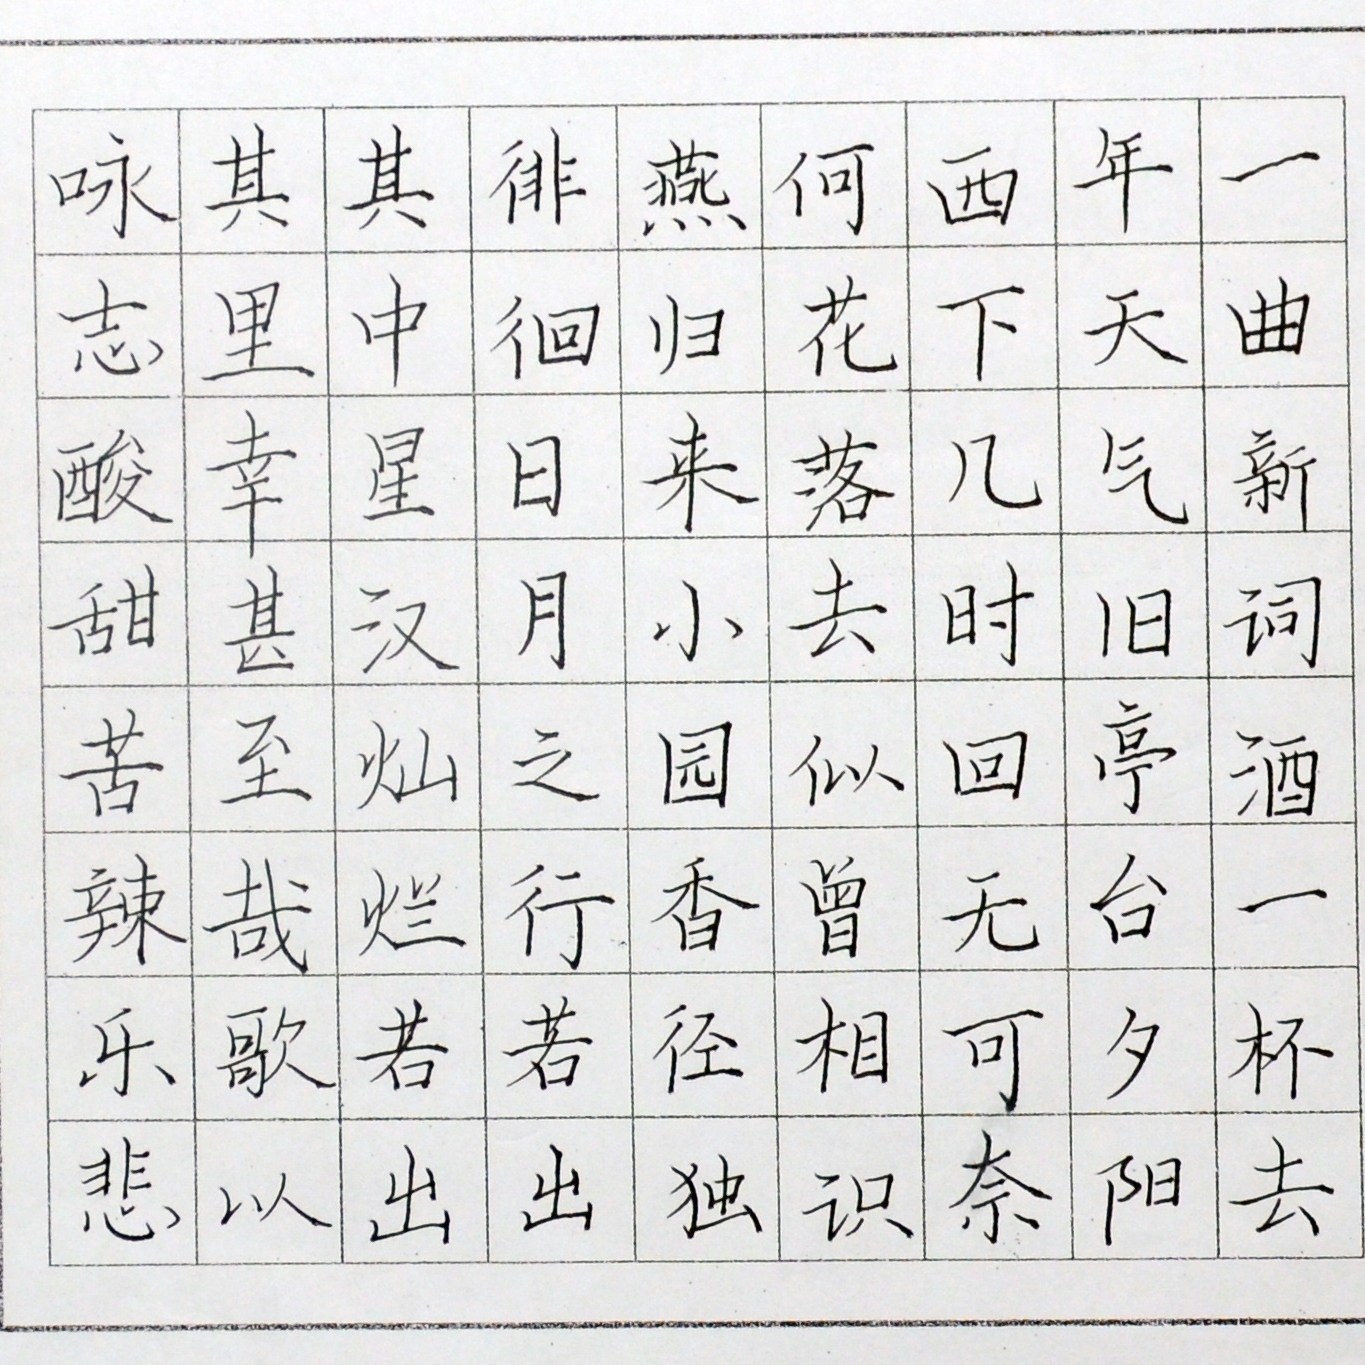 一曲新词酒一杯去
年天气旧亭台夕阳
西下几时回无可奈
何花落去似曾相识
燕归来小园香径独
徘徊日月之行若出
其中星汉灿烂若出
其里幸甚至哉歌以
咏志酸甜苦辣乐悲